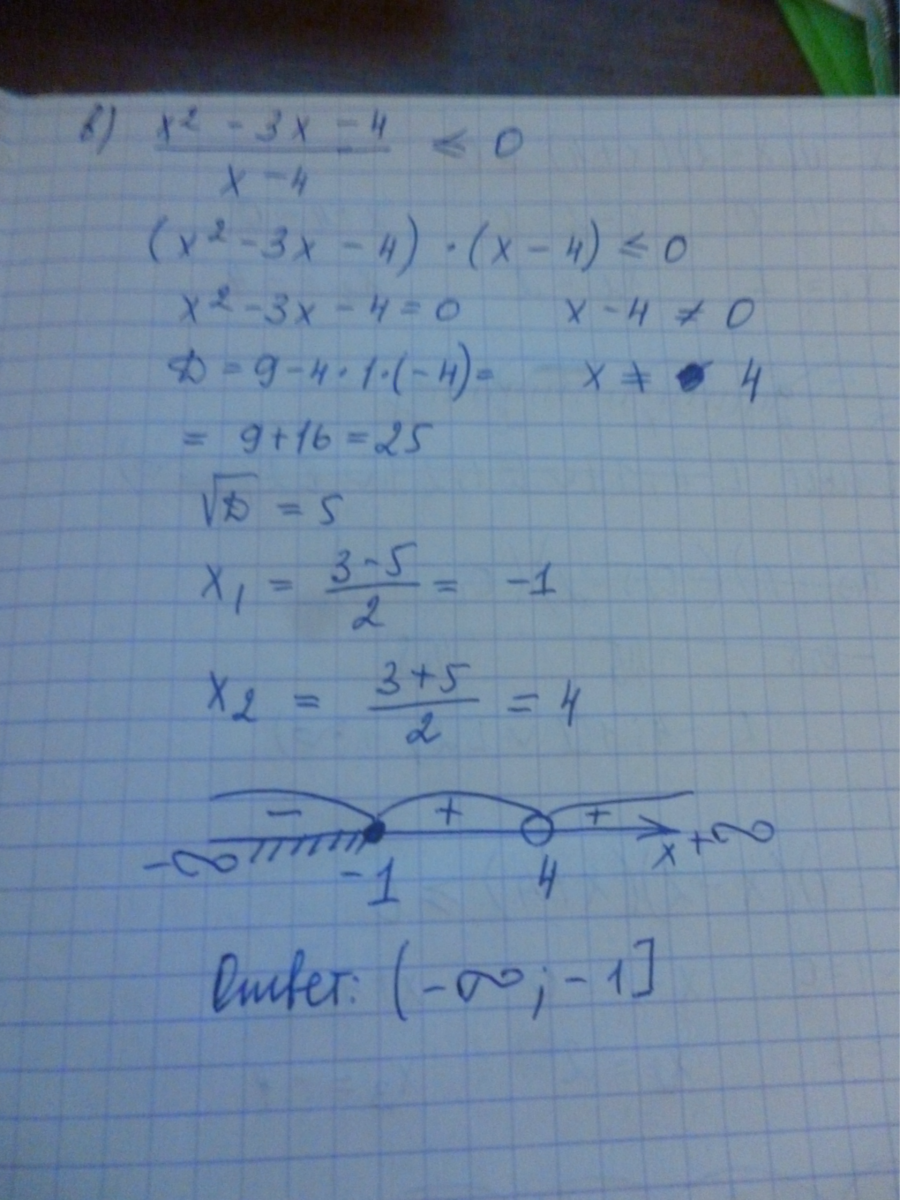 в) x² - 3x - 4 ≤ 0
x - 4
(x² - 3x - 4) · (x - 4) ≤ 0
x² - 3x - 4 = 0 x - 4 ≠ 0
D = 9 - 4 · 1 · (-4) = x ≠ 4
= 9 + 16 = 25
√D = 5
x₁ = 3-5/2 = -1
x₂ = 3+5/2 = 4
- + +
-∞ -1 4 x +∞
Ответ: (-∞; -1]